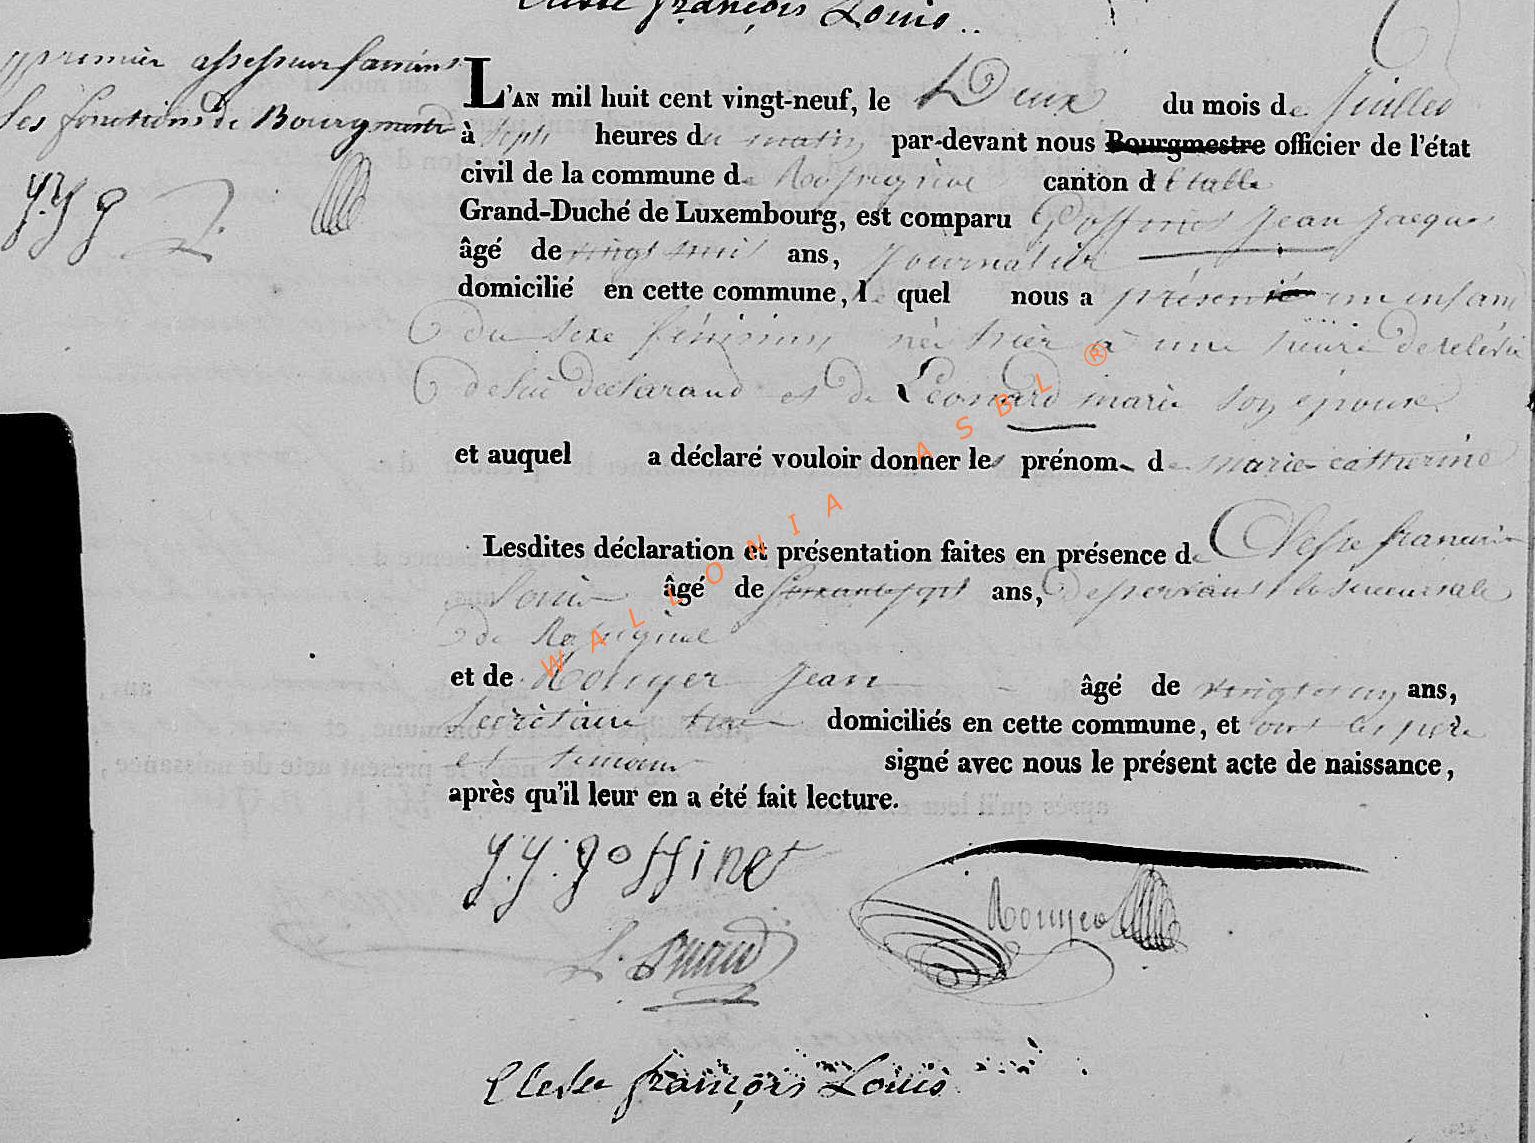 François Louis
premier assesseur faisant
les fonctions de Bourgmestre
L'AN mil huit cent vingt-neuf, le Deux du mois de Juillet
à sept heures du matin par-devant nous Bourgmestre officier de l'état
civil de la commune de canton d'Etalle
Grand-Duché de Luxembourg, est comparu Goffinet Jean Jacque
âgé de vingt ans, Journalier
domicilié en cette commune, lequel nous a présenté un enfant
du sexe féminin né hier à une heure de relévée
de lui déclarant et de Léonard marie son épouse
et auquel a déclaré vouloir donner les prénom de marie catherine
Lesdites déclaration et présentation faites en présence de Clesse françois
Louis âgé de ans, desservant la succursale
de
et de Rouyer Jean âgé de ans,
Secrétaire domiciliés en cette commune, et ont les père
et témoins signé avec nous le présent acte de naissance,
après qu'il leur en a été fait lecture.
J. J. goffinet
Rouyer
Clesse françois Louis
WALLONIA ASBL ®